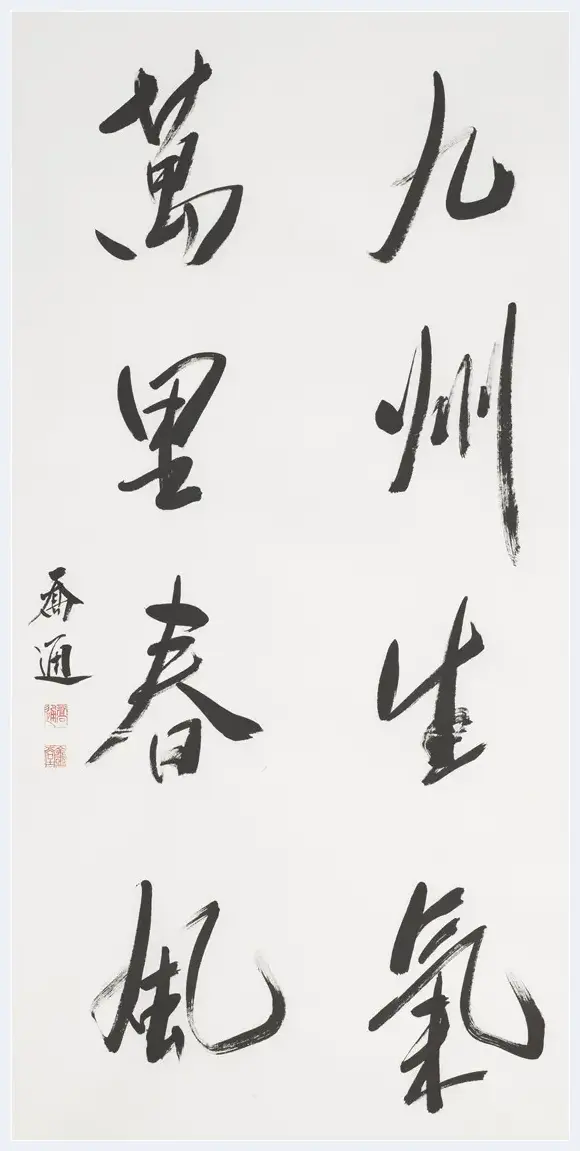 九州生氣
萬里春風
喬通